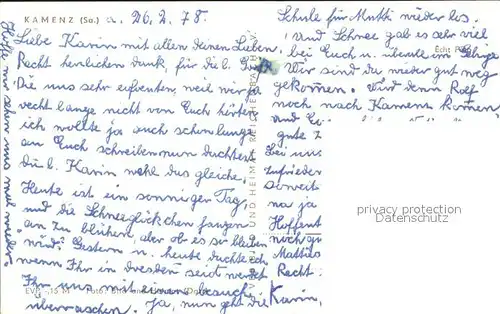 KAMENZ (Sa.) d. 26.2.78.
Liebe Karin mit allen deinen Lieben,
Recht herzlichen dank, für die l. Grüße
Die uns sehr erfreuten, weil wir ja
recht lange nicht von Euch hörten,
ich wollte ja auch schon lange
an Euch schreiben nun dachtest
du l. Karin wohl das gleiche,
Heute ist ein sonniger Tag,
und die Schneeglöckchen fangen
an zu blühen, aber ob es so bleiben
wird? Gestern u. heute dachte ich
wenn Ihr in Dresden seid werdet
Ihr uns mit einem besuch
überraschen. Ja, nun geht die
Schule für Mutti wieder los.
und Schnee gab es sehr viel
bei Euch u. überall im Gebirge
Wir sind da wieder gut weg
gekommen. Wird denn Rolf
noch nach Kamenz kommen
und
gute
Bei uns
zufrieden
na ja
Hoffent
noch
Mathias
Recht
Karin,
wir sehn uns mal wieder.
Echt
UND HEIMAT REICHENBACH
EVP -,15 M
privacy protection
Datenschutz